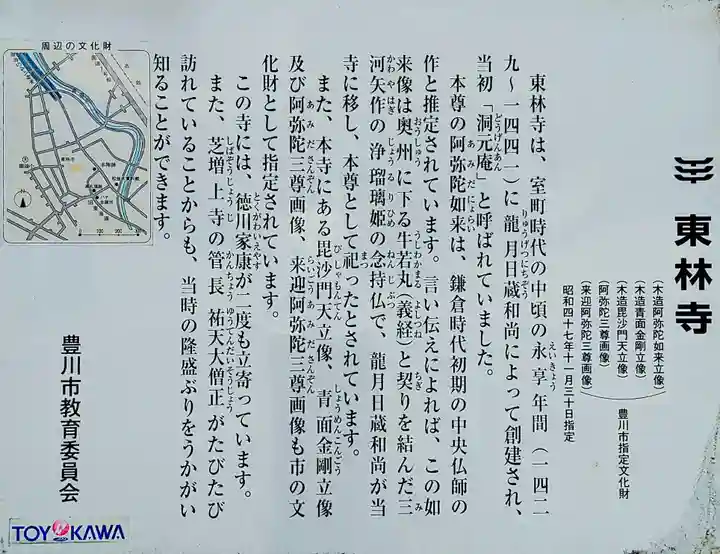 東林寺
(木造阿弥陀如来立像)
(木造毘沙門天立像)
(木造青面金剛立像)
(阿弥陀三尊画像)
(来迎阿弥陀三尊画像)
豊川市指定文化財
昭和四十七年十一月三十日指定
東林寺は、室町時代の中頃の永享年間(一四二
九~一四四一)に龍月日蔵和尚によって創建され、
当初「洞元庵」と呼ばれていました。
本尊の阿弥陀如来は、鎌倉時代初期の中央仏師の
作と推定されています。言い伝えによれば、この如
来像は奥州に下る牛若丸(義経)と契りを結んだ三
河矢作の浄瑠璃姫の念持仏で、龍月日蔵和尚が当
寺に移し、本尊として祀ったとされています。
また、本寺にある毘沙門天立像、青面金剛立像
及び阿弥陀三尊画像、来迎阿弥陀三尊画像も市の文
化財として指定されています。
この寺には、徳川家康が二度も立寄っています。
また、芝増上寺の管長祐天大僧正がたびたび
訪れていることからも、当時の隆盛ぶりをうかがい
知ることができます。
豊川市教育委員会
周辺の文化財
東林寺
TOYOKAWA